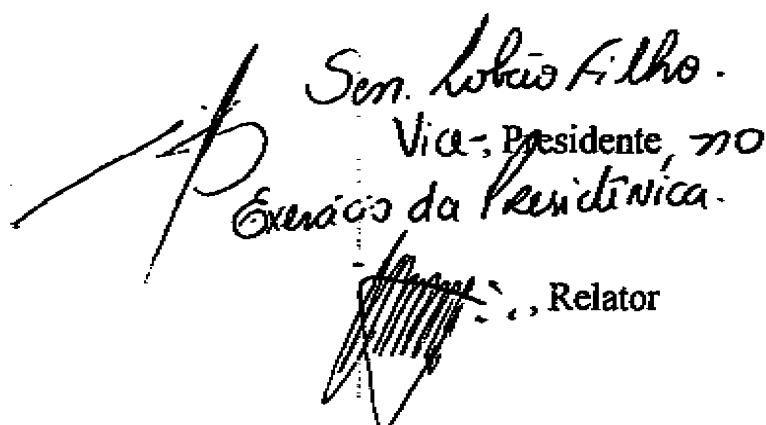 Sen. Lobão Filho.
Vice-, Presidente, no
Exercício da Presidência.
, Relator